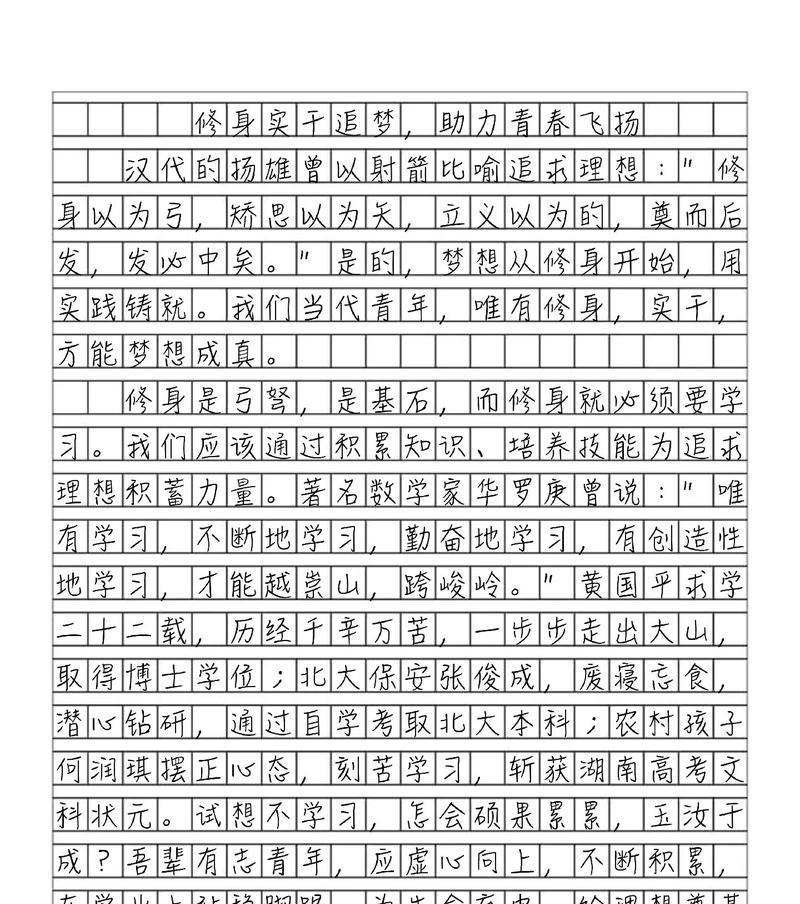 修身实干追梦，助力青春飞扬
汉代的扬雄曾以射箭比喻追求理想："修
身以为弓，矫思以为矢，立义以为的，奠而后
发，发必中矣。"是的，梦想从修身开始，用
实践铸就。我们当代青年，唯有修身，实干，
方能梦想成真。
修身是弓弩，是基石，而修身就必须要学
习。我们应该通过积累知识、培养技能为追求
理想积蓄力量。著名数学家华罗庚曾说："唯
有学习，不断地学习，勤奋地学习，有创造性
地学习，才能越崇山，跨峻岭。"黄国平求学
二十二载，历经千辛万苦，一步步走出大山，
取得博士学位；北大保安张俊成，废寝忘食，
潜心钻研，通过自学考取北大本科；农村孩子
何润琪摆正心态，刻苦学习，斩获湖南高考文
科状元。试想不学习，怎会硕果累累，玉汝于
成？吾辈有志青年，应虚心向上，不断积累，